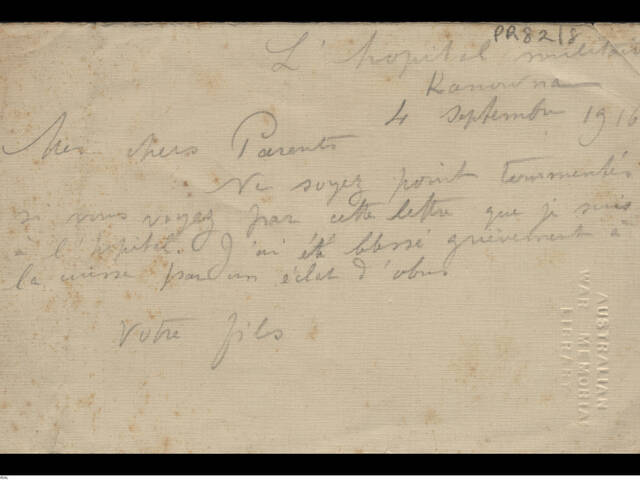 PR82/8
L'hopital militaire
Kanowna
4 septembre 1916
Mes chers Parents
Ne soyez point tourmentés
si vous voyez par cette lettre que je suis
à l'hopital. J'ai été blessé grièvement à
la cuisse par un éclat d'obus
Votre fils
AUSTRALIAN
WAR MEMORIAL
LIBRARY